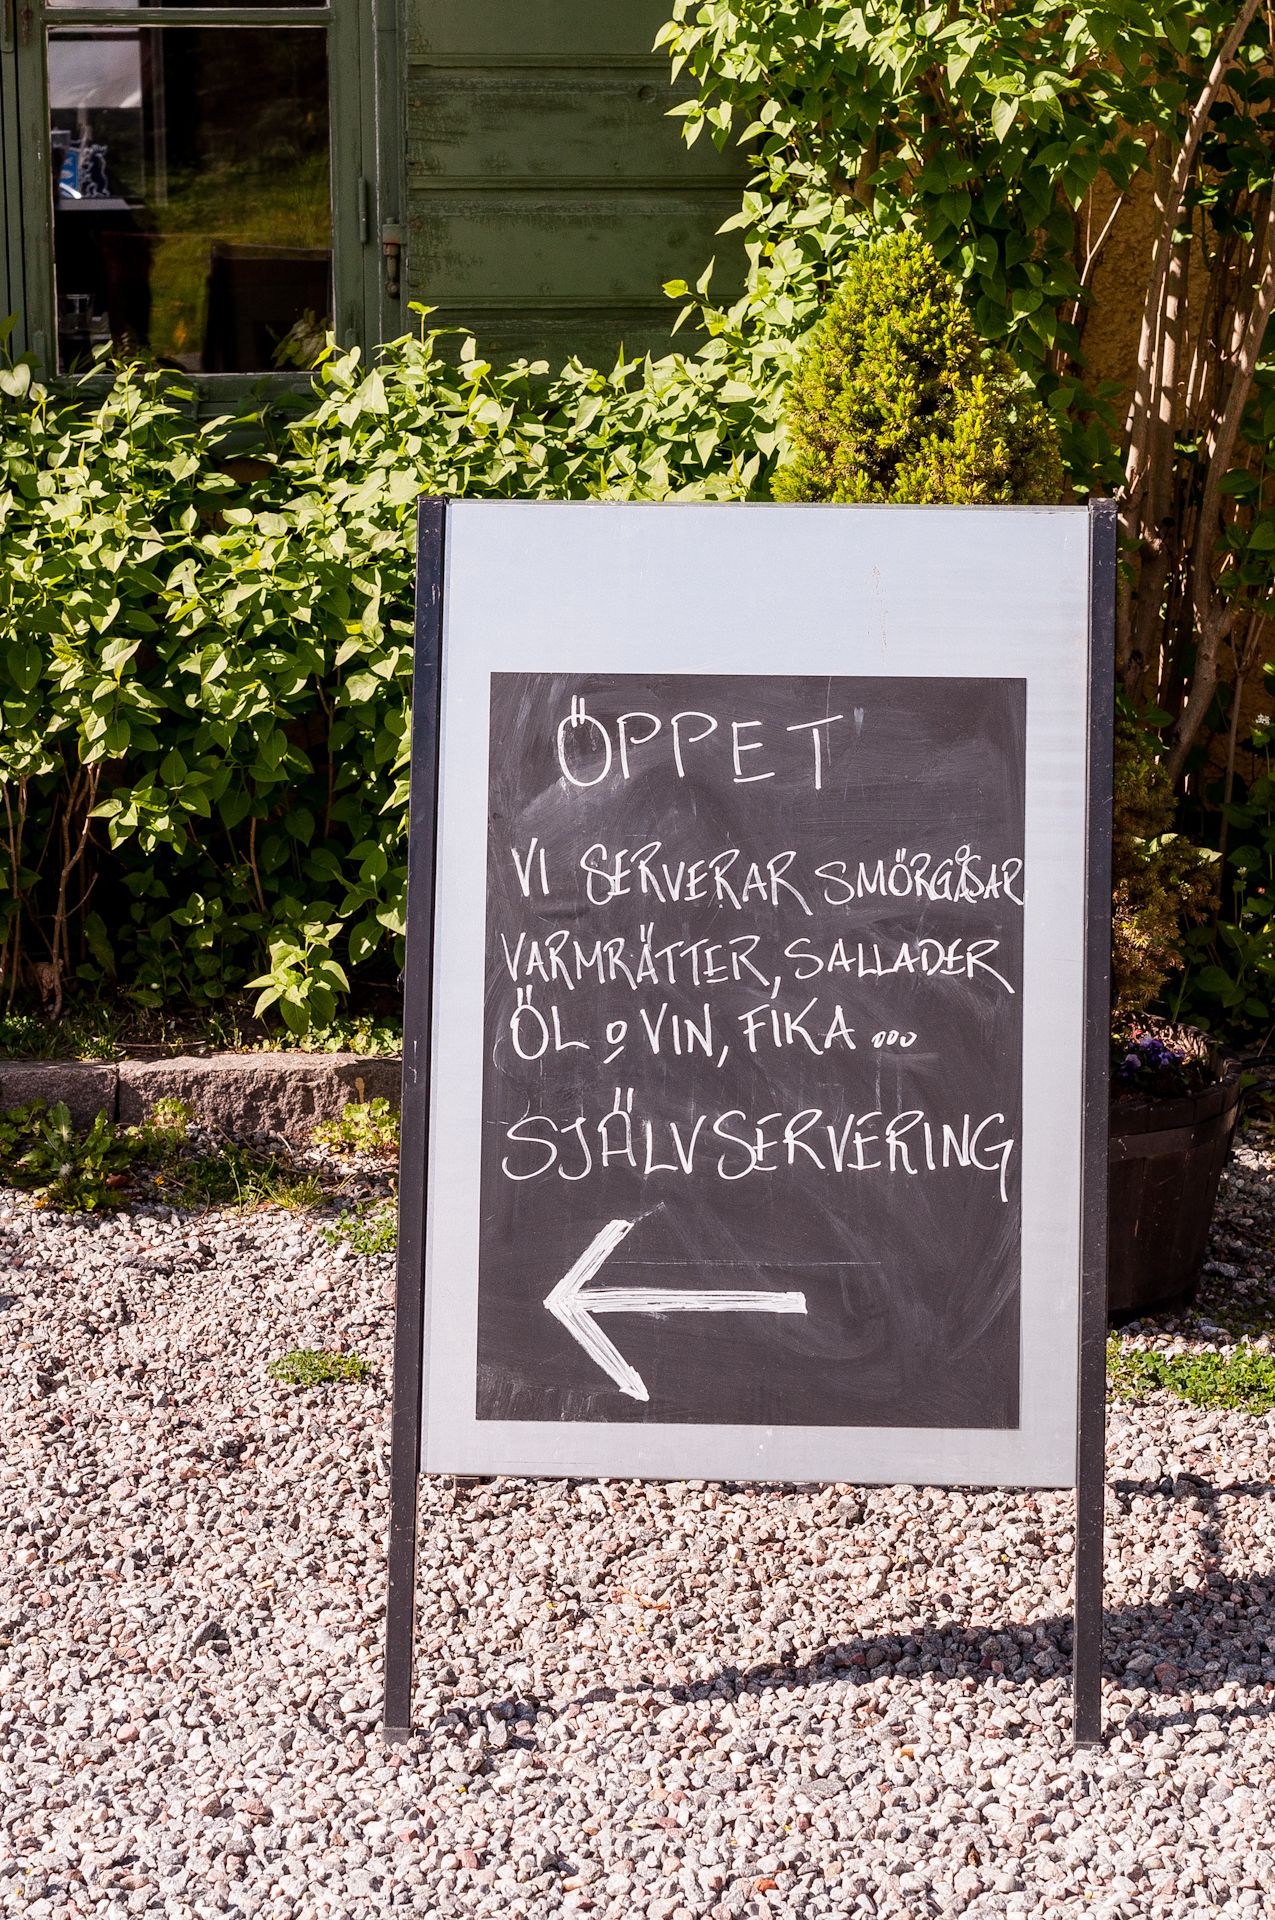 ÖPPET
VI SERVERAR SMÖRGÅSAR
VARMRÄTTER, SALLADER
ÖL o VIN, FIKA ...
SJÄLVSERVERING